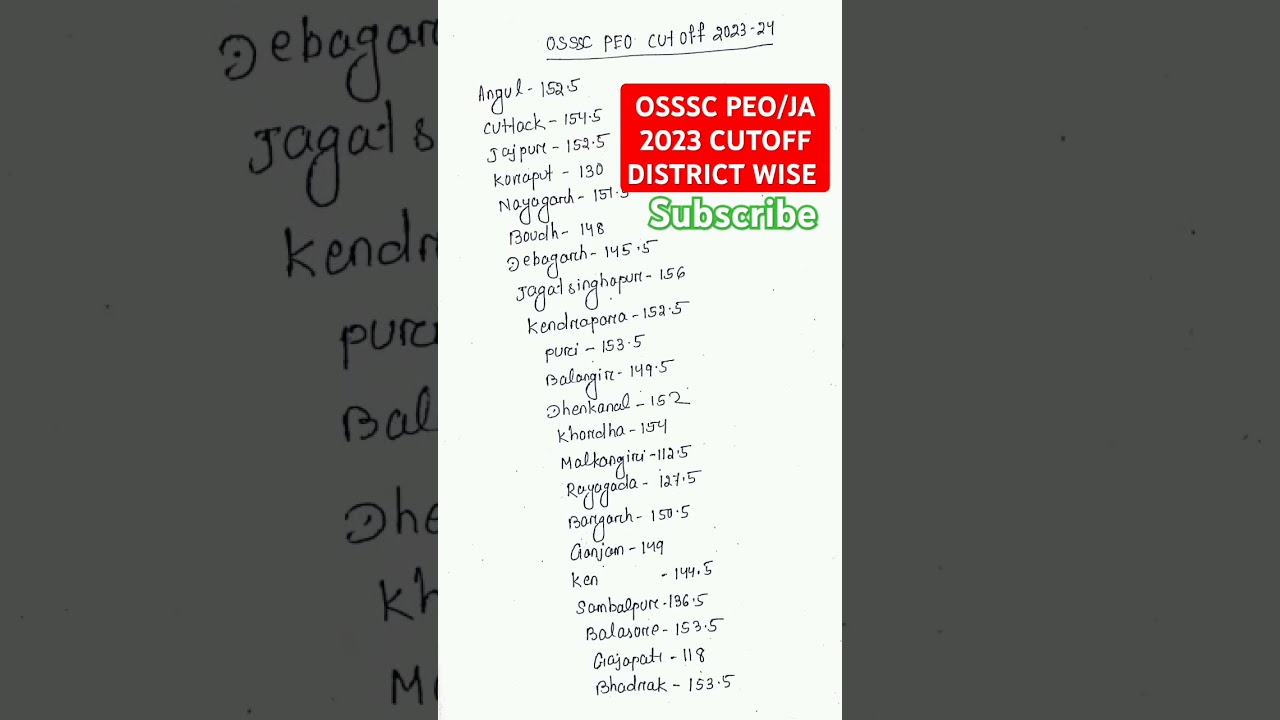 OSSSC PEO CUT OFF 2023-24
Angul - 152.5
Cuttack - 154.5
Jajpur - 152.5
Koraput - 130
Nayagarh - 151.5
Boudh - 148
Debagarh - 145.5
Jagatsinghapur - 156
Kendrapara - 152.5
Puri - 153.5
Balangir - 149.5
Dhenkanal - 152
Khordha - 154
Malkangiri - 112.5
Rayagada - 127.5
Bargarh - 150.5
Ganjam - 149
Ken - 144.5
Sambalpur - 136.5
Balasore - 153.5
Gajapati - 118
Bhadrak - 153.5
OSSSC PEO/JA
2023 CUTOFF
DISTRICT WISE
Subscribe
Debagar
Jagats
Kendr
Puri
Bal
Dhe
Kh
M